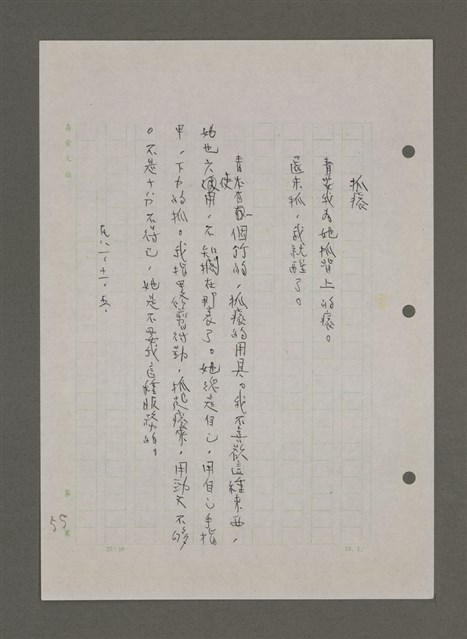 抓痒
青要我为她抓背上的痒。
还未抓，我就醒了。
青本有一個竹的，抓痒的用具。我不喜欢這種東西，
她也少使用，不知擱在那裏了。她總是自己，用自己手指
甲，下力的抓。我指甲修剪得勤，抓起痒來，用勁又不够
。不是十分不得已，她是不要我這種服務的。
九一・十一・五・
55